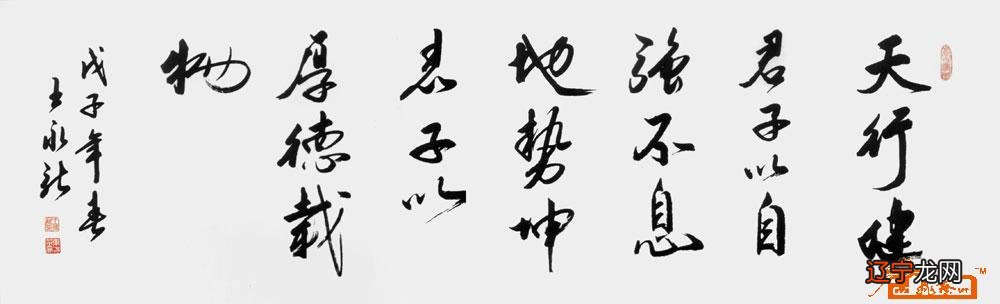 天行健
君子以自
強不息
地势坤
君子以
厚德載
物
戊子年春
王永
辽宁龙网
TM